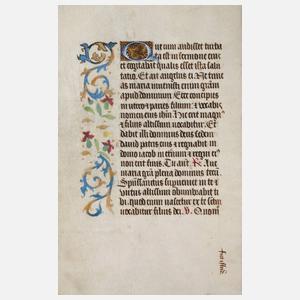 Que cum audisset turba
ta est in sermone eius
et cogitabat qualis esset ista salu
tatio. Et ait angelus ei Ne time
as maria invenisti enim gratiam
apud dominum. Ecce concipies
in utero et paries filium: et vocabis
nomen eius ihm. Hic erit magnꝰ
et filius altissimi vocabitur. Et
dabit illi dominus deus sedem
david patris eius et regnabit in
domo iacob in eternum et regni eiꝰ
non erit finis. Tu autem. R. Ave
maria gratia plena dominus tecum
Spiritussanctus superveniet in te et
virtus altissimi obumbrabit ti
bi. Quod enim nascetur ex te sanctum
vocabitur filius dei. V. Quomo